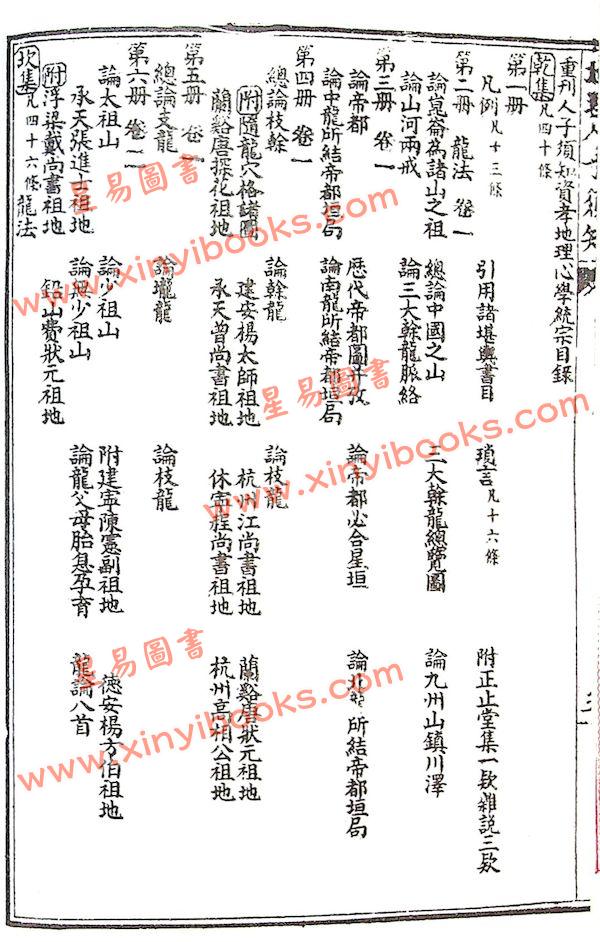 重刊人子須知資孝地理心學統宗目錄
乾集凡四十條
第一册
凡例凡十三條 引用諸堪輿書目 瑣言凡十六條 附正止堂集一欵雜説三欵
第二册 龍法 卷一
論崑崙為諸山之祖 總論中國之山 三大幹龍總覽圖 論九州山鎮川澤
論山河兩戒 論三大幹龍脈絡
第三册 卷一
論帝都 歷代帝都圖并攷 論帝都必合星垣 論北龍所結帝都垣局
論中龍所結帝都垣局 論南龍所結帝都垣局
第四册 卷一
總論枝幹 論幹龍 論枝龍
附隨龍穴格諸圖 建安楊太師祖地 杭州江尚書祖地 蘭谿唐狀元祖地
蘭谿唐探花祖地 承天曾尚書祖地 休寧程尚書祖地 杭州高相公祖地
第五册 卷一
總論支龍 論壠龍 論枝龍
第六册 卷二
論太祖山 論少祖山 附建寧陳憲副祖地 德安楊方伯祖地
承天張進士祖地 論無少祖山 論龍父母胎息孕育 龍論八首
附浮梁戴尚書祖地 鉛山費狀元祖地
坎集凡四十六條龍法
星易圖書
www.xinyibooks.com
星易圖書
www.xinyibooks.com
星易圖書
www.xinyibooks.com